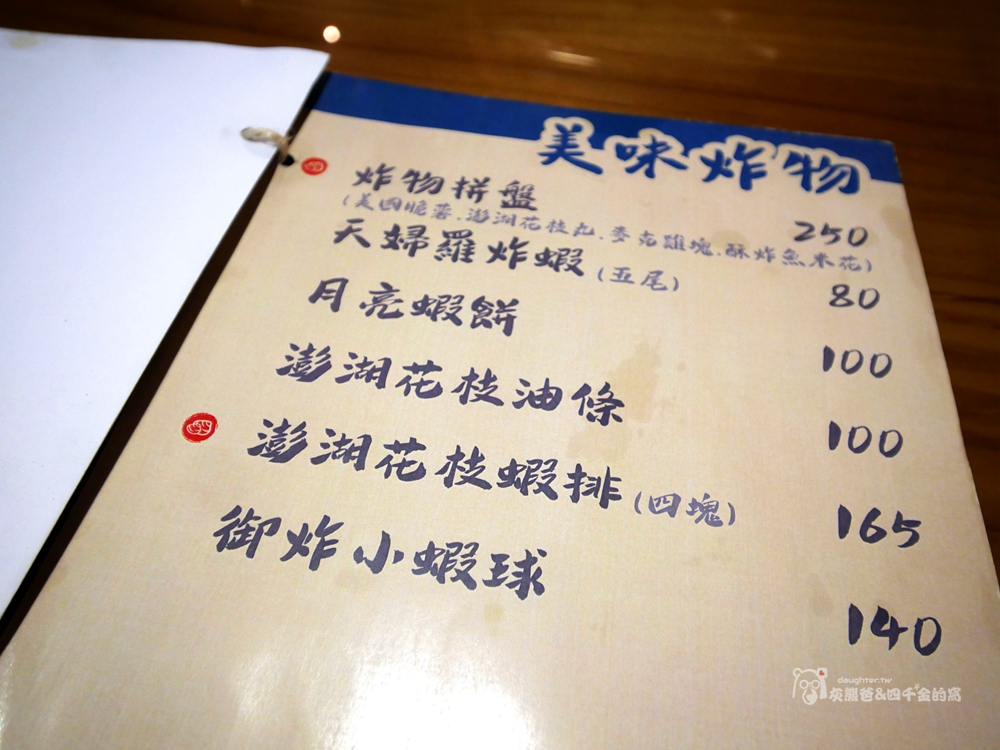 美味炸物
炸物拼盤 250
(美國脆薯.澎湖花枝丸.麥克雞塊.酥炸魚米花)
天婦羅炸蝦(五尾) 80
月亮蝦餅 100
澎湖花枝油條 100
澎湖花枝蝦排(四塊) 165
御炸小蝦球 140
daughter.tw
灰熊爸&四千金的窩